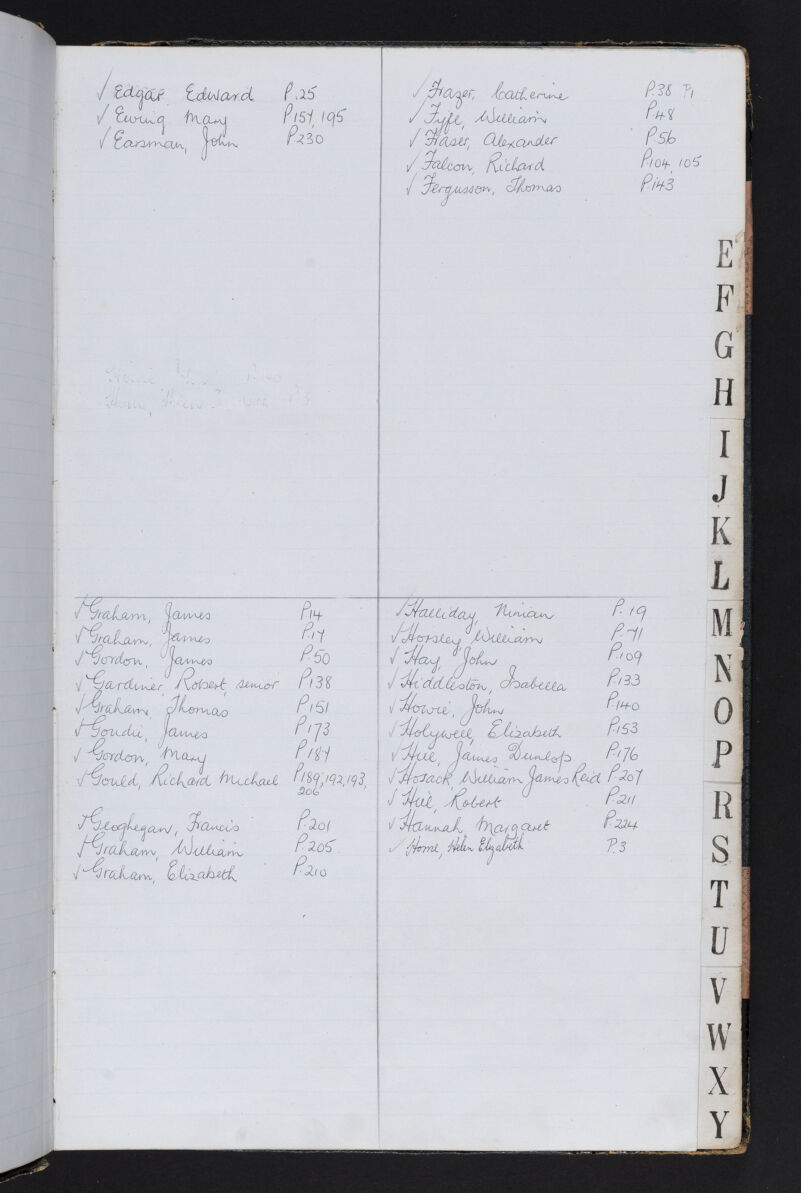 ✓ Edgar, Edward P.25
✓ Ewing Mary P157, 195
✓ Earsman, John P.230
✓ Frazer, Catherine P.38 P1
✓ Fyfe, William P.48
✓ Fraser, Alexander P.56
✓ Falcon, Richard P.104, 105
✓ Fergusson, Thomas P.143
Home,
✓ Graham, James P.14
✓ Graham, James P.17
✓ Gordon, James P.50
✓ Gardiner, Robert, senior P.138
✓ Graham, Thomas P.151
✓ Goudie, James P.173
✓ Gordon, Mary P.187
✓ Gould, Richard Michael P.189, 192, 193,
206
✓ Geoghegan, Francis P.201
✓ Graham, William P.205
✓ Graham, Elizabeth P.210
✓ Halliday, Ninian P.19
✓ Horsley, William P.71
✓ Hay, John P.109
✓ Hiddleston, Isabella P.133
✓ Howie, John P.140
✓ Holywell, Elizabeth P.153
✓ Hill, James Dunlop P.176
✓ Hosack, William James Reid P.207
✓ Hill, Robert P.211
✓ Hannah, Margaret P.224
✓ Home, Helen Elizabeth P.3
E
F
G
H
I
J
K
L
M
N
O
P
R
S
T
U
V
W
X
Y